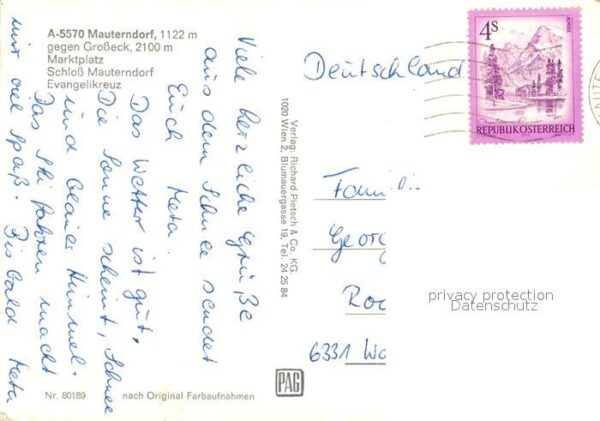 A-5570 Mauterndorf, 1122 m
gegen Großeck, 2100 m
Marktplatz
Schloß Mauterndorf
Evangelikreuz
Viele herzliche Grüße
aus dem Schnee sendet
Euch Meta.
Das Wetter ist gut,
Die Sonne scheint, Schnee
und blauer Himmel.
Das Ski fahren macht
mir viel spaß. Bis bald Meta
Nr. 80189 nach Original Farbaufnahmen
Verlag: Richard Pietsch & Co. KG
1020 Wien 2, Blumauergasse 19, Tel. 24 25 84
PAG
4S
ALMSEE
REPUBLIK ÖSTERREICH
Deutschland
Famili
Georg
Ro
6331 Wa
privacy protection
Datenschutz